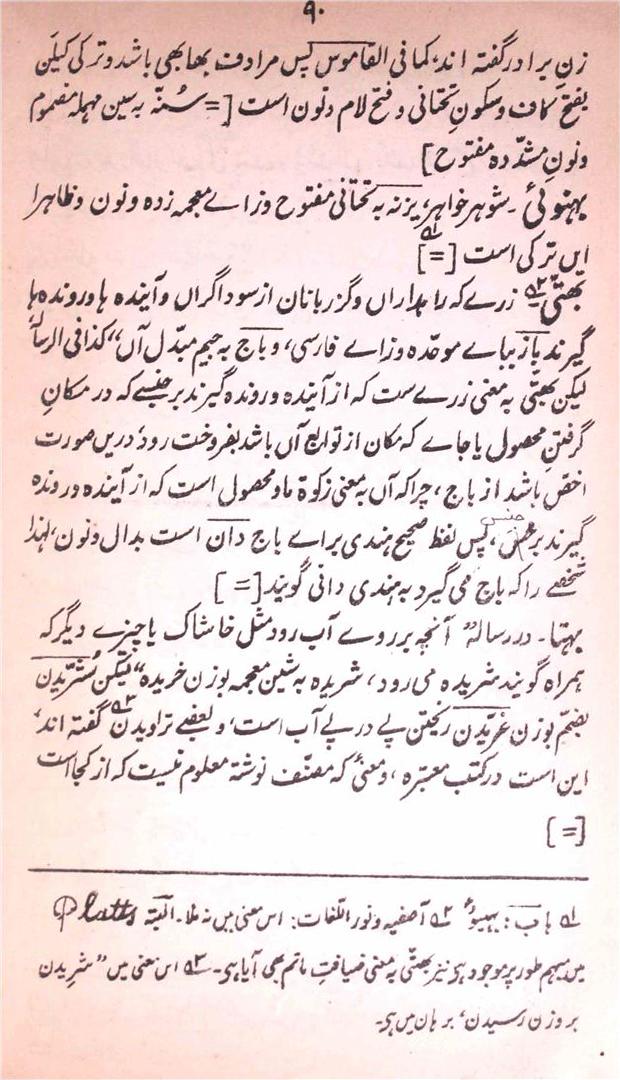 ۹۰
زنِ برادر گفته اند، کما فی القاموس پس مرادف بھابھی باشد و ترکی کیلَن
بفتح کاف و سکونِ تحتانی و فتح لام و نون است [= سُنّه به سین مہمله مضموم
و نونِ مشدّده مفتوح]
بہنوئی ۔ شوہر خواہر، یزنه به تحتانی مفتوح و زاے معجمه زده و نون و ظاہرا
ایں ترکی است ۵۱ [=]
بھتّی ۵۲ زرے که راہداراں و گزربانان از سوداگراں و آینده ہا و رونده ہا
گیرند باز بباے موحّده و زاے فارسی، و باج به جیم مبدّل آں“ کذا فی الرسالۂ
لیکن بھتّی به معنی زرے ست که از آینده و رونده گیرند بر جنسے که در مکانِ
گرفتنِ محصول یا جاے که مکان از توابع آں باشد بفروخت رود، دریں صورت
اخص باشد از باج، چرا که آں به معنی زکوة ما و محصول است که از آینده و رونده
گیرند بر جنس، پس لفظ صحیح ہندی براے باج دان است بدال و نون، لہٰذا
شخصے را که باج می گیرد به ہندی دانی گویند [=]
بہتا ۔ در رساله” آنچه بر روے آب رود مثل خاشاک یا چیزے دیگر که
ہمراه گویند شریده می رود، شریده به شین معجمه بوزن خریده“ لیکن شُرّیدن
بضم بوزن غرّیدن ریختن پے در پے آب است، و بعضے تراویدن ۵۳ گفته اند،
این است در کتب معتبره، و معنیٰ که مصنّف نوشته معلوم نیست که از کجا است
[=]
۵۱ ہاب: بہیئو ۵۲ آصفیه و نور اللّغات: اس معنی میں نه ملا۔ البتّه Platts
میں مبہم طور پر موجود ہی نیز بھتّی به معنی ضیافتِ ماتم بھی آیا ہی۔ ۵۳ اس معنی میں ”شریدن
بر وزن رسیدن، برہان میں ہی۔